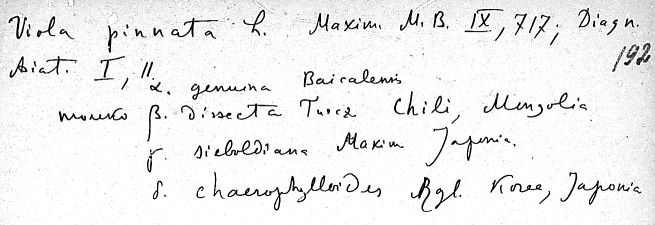 Viola pinnata L. Maxim. M. B. IX, 717; Diagn.
192
Asiat. I, 11
α. genuina Baicalensis
β. dissecta Turcz Chili, Mongolia
γ. sieboldiana Maxim Japonia.
δ. chaerophylloides Rgl. Korea, Japonia